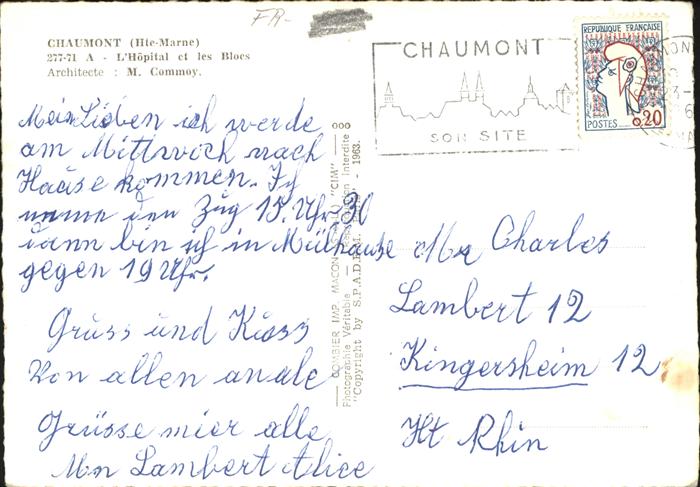 FR-
CHAUMONT (Hte-Marne)
277-71 A - L'Hôpital et les Blocs
Architecte : M. Commoy.
CHAUMONT
SON SITE
REPUBLIQUE FRANÇAISE
POSTES 0,20
Mein Lieben ich werde
am Mittwoch nach
Hause kommen. Ich
den Zug 15. Uhr 30
dann bin ich in Mülhause
gegen 19 Uhr.
Gruss und Kuss
Von allen an alle
Grüsse mier alle
Lambert Alice
COMBIER IMP. MACON "CIM"
Photographie Véritable - Reproduction interdite
"Copyright by S.P.A.D.E.M. - 1963.
Mr Charles
Lambert 12
Kingersheim 12
Ht Rhin